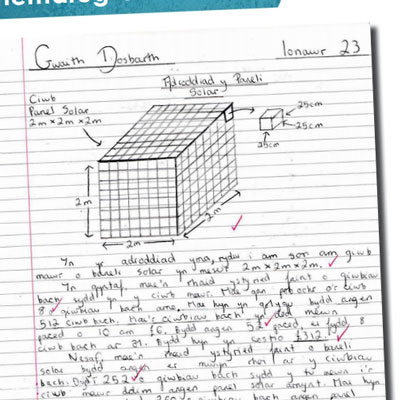 Gwaith Dosbarth
Ionawr 23
Adroddiad y Paneli
Solar
Ciwb
Panel Solar
2m × 2m × 2m
25cm
25cm
25cm
2m
2m
2m
Yn yr adroddiad yma, rydw i am son am giwb
mawr o baneli solar yn mesur 2m × 2m × 2m.
Yn gyntaf, mae'n rhaid ystyried faint o giwbiau
bach sydd yn y ciwb mawr. Mae gan pob ochr o'r ciwb
8 giwbiau bach arno. Mae hyn yn golygu bydd angen
512 ciwb bach. Mae'r ciwbiau bach yn dod mewn
paced o 10 am £6. Bydd angen 52 paced, es fydd 8
ciwb bach ar ôl. Bydd hyn yn costio £312.
Nesaf, mae'n rhaid ystyried faint o baneli
solar bydd angen
bach. Bydd 252 o giwbiau bach sydd y tu mewn i'r
ciwb mawr ddim angen panel solar arnynt. Mae hyn
giwbiau bach angen panel